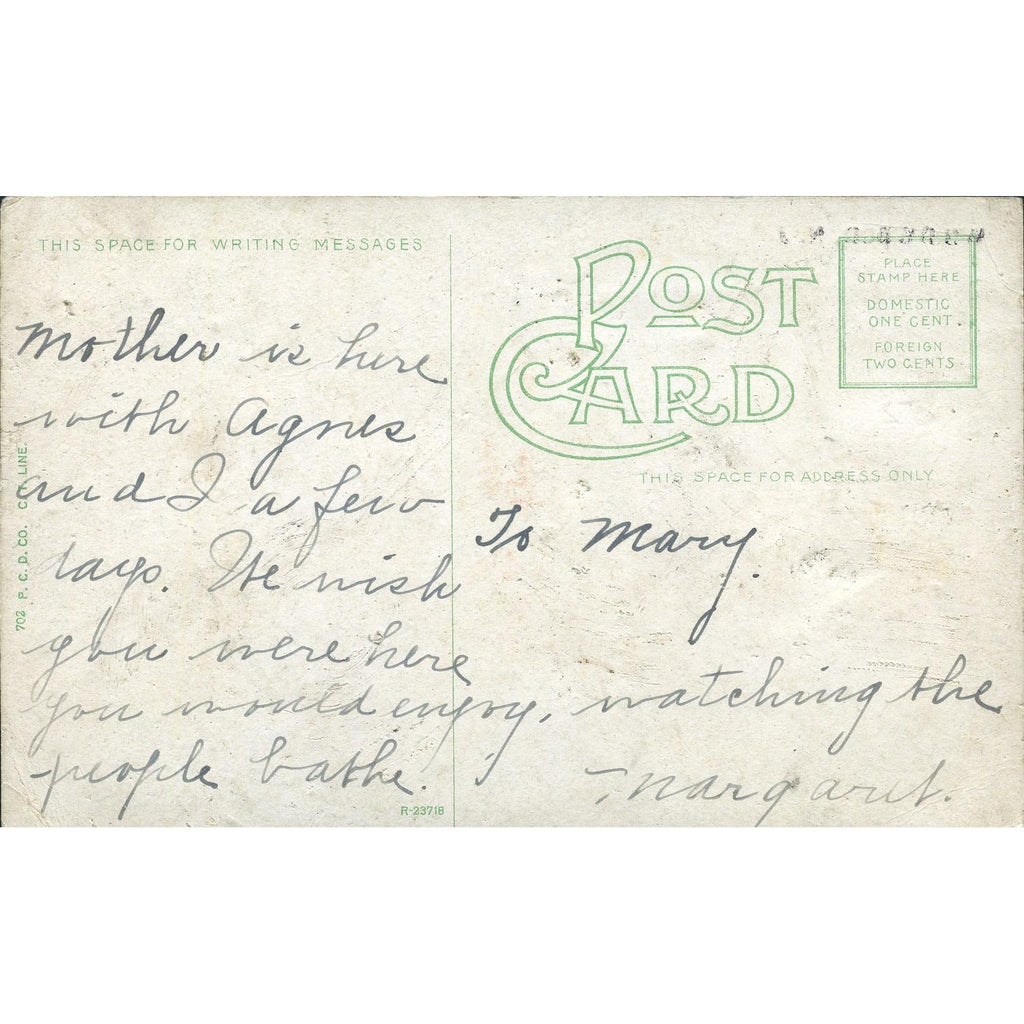 THIS SPACE FOR WRITING MESSAGES
POST
CARD
PLACE
STAMP HERE
DOMESTIC
ONE CENT.
FOREIGN
TWO CENTS.
THIS SPACE FOR ADDRESS ONLY
Mother is here
with Agnes
and I a few
days. We wish
you were here
you would enjoy, watching the
people bathe.
Margaret.
To Mary.
702 P. C. D. CO. CTY. LINE.
R-23718